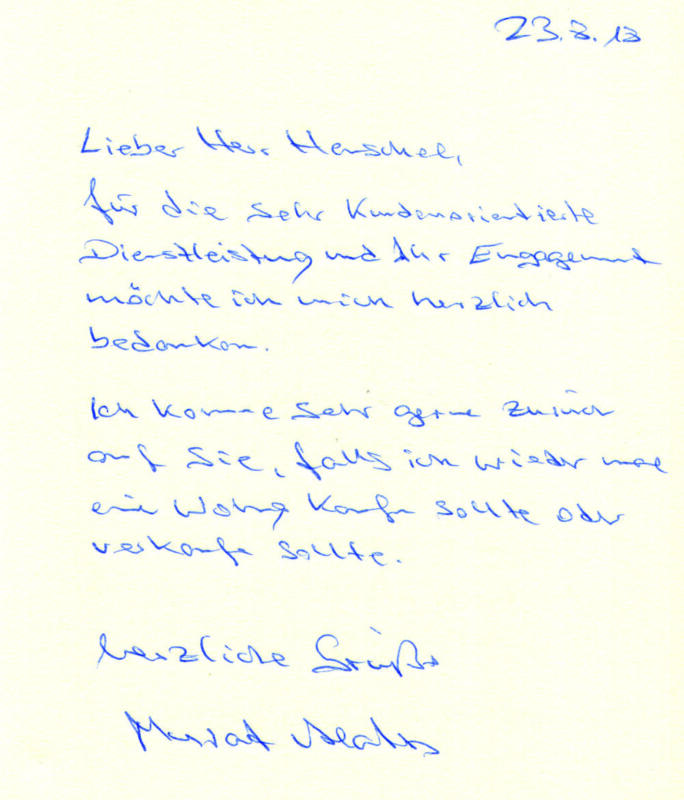 23.8.13
Lieber Herr Henschel,
für die sehr kundenorientierte
Dienstleistung und Ihr Engagement
möchte ich mich herzlich
bedanken.
Ich komme sehr gerne zurück
auf Sie, falls ich wieder mal
eine Wohng kaufen sollte oder
verkaufe sollte.
herzliche Grüße
Murat